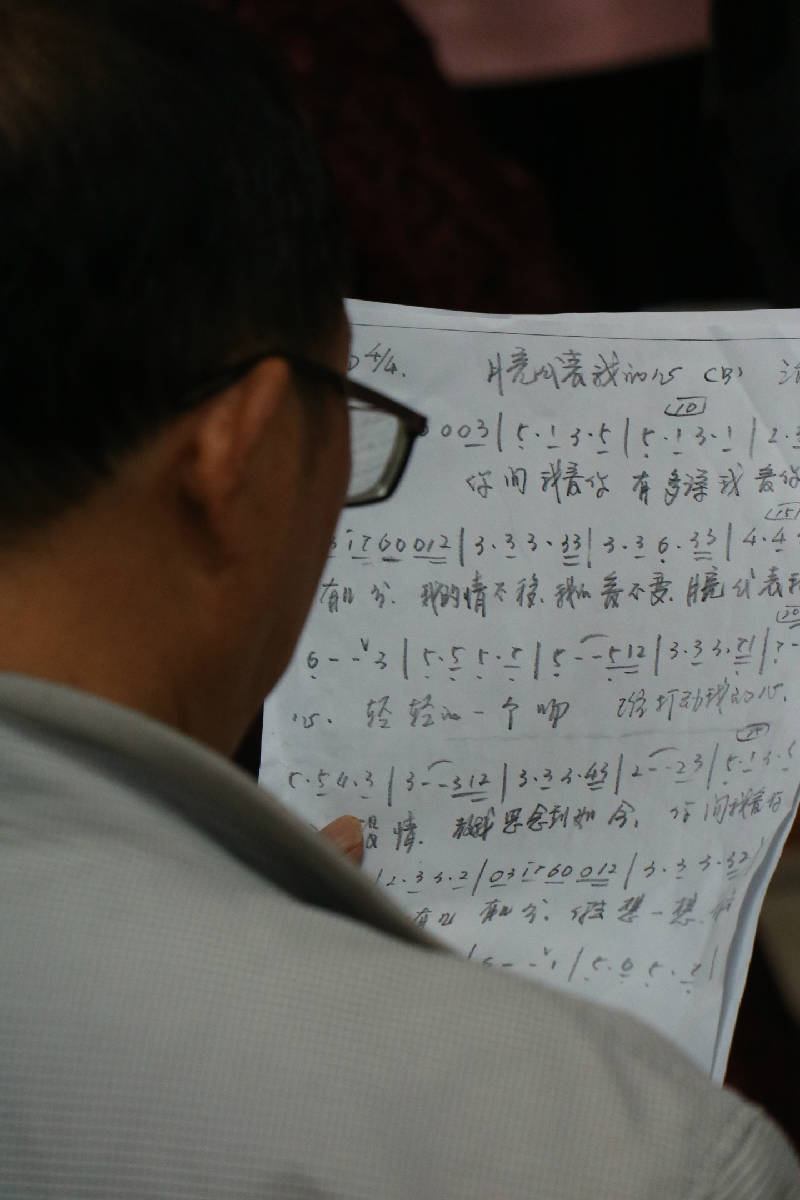 4/4. 月亮代表我的心 (B)
10
003 | 5·1 3·5 | 5·1 3·1 | 2·3
你问我爱你有多深我爱你
15
i7 60 012 | 3·3 3·33 | 3·3 6·33 | 4·4
有几分.我的情不移.我的爱不变.月亮代表我
20
6 - - ᵛ3 | 5·5 5·5 | 5 - - 512 | 3·3 3·51 |
心. 轻轻的一个吻 打动我的心.
25
5·5 4·3 | 3 - - 312 | 3·3 3·43 | 2 - - 23 | 5·1 3·5
段情. 教我思念到如今, 你问我爱你
| 2·3 3·2 | 03 i7 60 012 | 3·3 3·32 |
有几分. 想一想.
- - ᵛ | 5·6 5·5 |